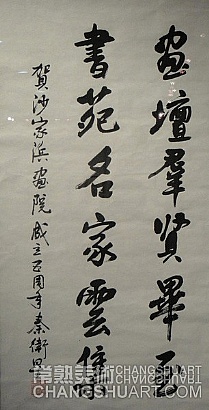 畫壇羣賢畢至
書苑名家雲集
賀沙家浜畫院成立五周年秦衛星
常熟美術 CHANGSHUART
CHANGSHUART.COM